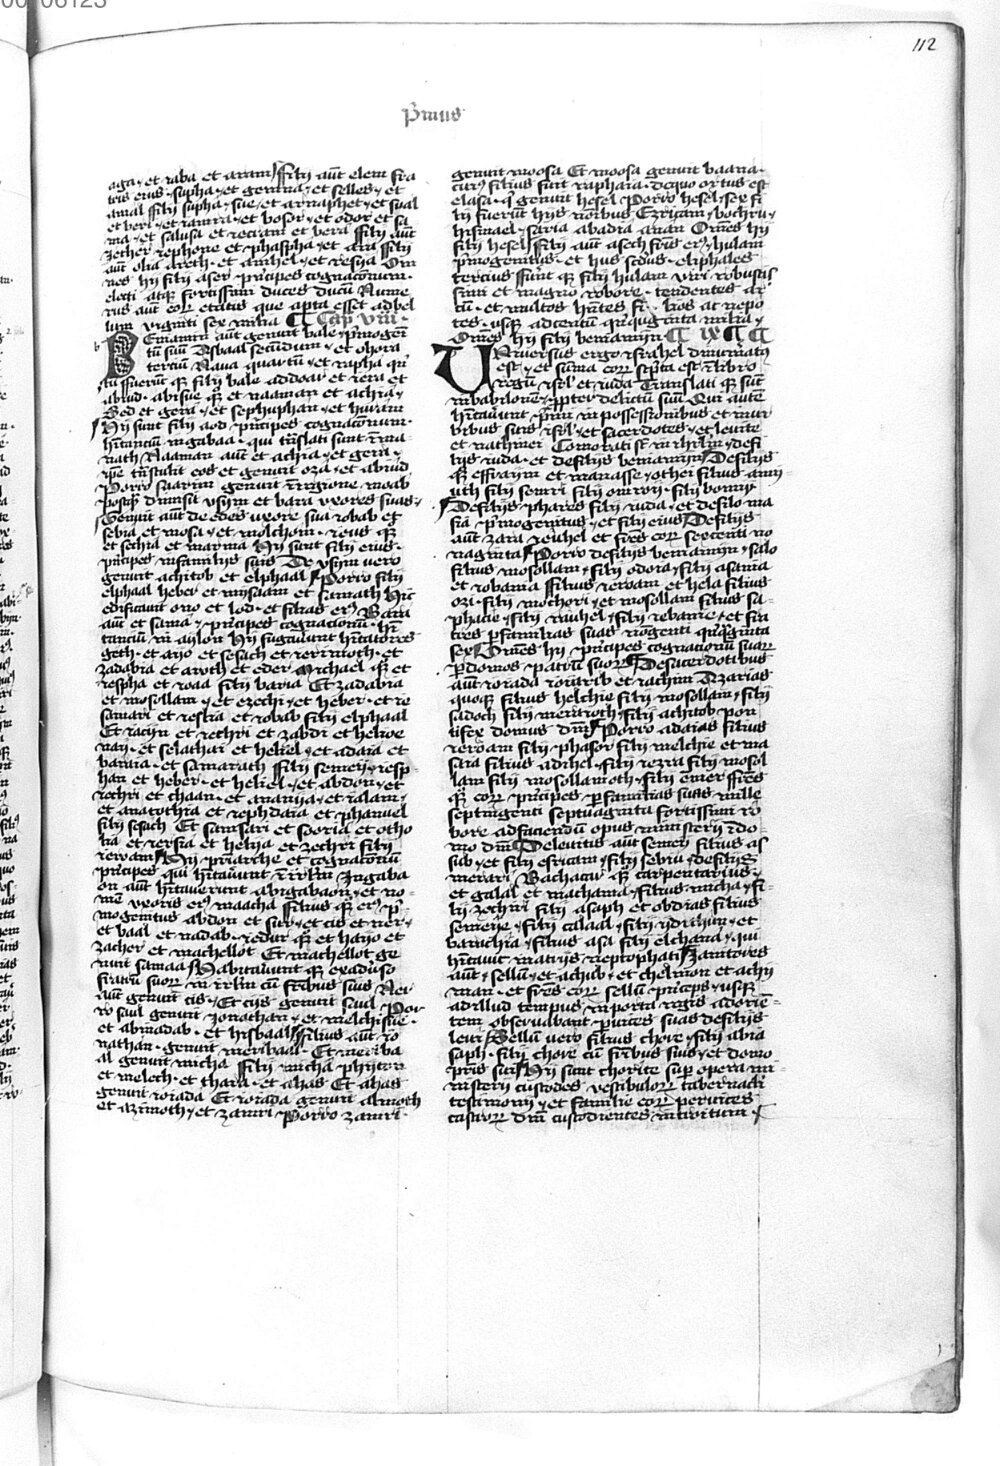 112
P̄mus
aga · et iaba et aram filij aūt elem fra
tris eius · supha · et gemma · et selles · et
amal filij supha · sue · et arnaphet · et sual
et beri · et iamra · et bosor · et odor et sa
ma · et salusa et iecram et bera filij aūt
Jether iephone et phaspha · et ara filij
aūt olla areth · et anihel · et resya Om
nes hij filij aser p̄ncipes cognacionum ·
electi atq̄ fortissimi duces ducū Nume
rus aūt eorꝝ etatis que apta esset ad bel
lum viginti sex milia Cap̄ VIII ·
BEniamin aūt genuit bale · p̄mogeni
tū suū Asbaal secūdum · et ohora
terciū Naua quartū · et rapha qn̄
tū fueruntq̄ filij bale addoar · et iera et
abiud · abisue q̄ et naaman et achia ·
Sed et gera · et sephuphan · et huram
Hij sunt filij aod p̄ncipes cognacionum ·
hitanciū in gabaa · qui tn̄slati sunt in ma
nath Naaman aūt et achia · et gera ·
ip̄e tn̄stulit eos et genuit oza · et abiud
Porro saarim genuit in regione moab
postq̄ dimisit vsym et bara vxores suas ·
Genuit aūt de edes vxore sua iobab et
sebia et mosa · et molchom · ieus q̄
et sechia et marma Hij sunt filij eius ·
p̄ncipes in familijs suis De vsym vero
genuit achitob et elphaal Porro filij
elphaal heber et mysaam et samath Hic
edificauit ono et lod · et filias eiꝰ Bara
aūt et sama · p̄ncipes cognacionū · hi
tanciū in aylon Hij fugauerunt hitatores
geth · et ayo et sesach et ierimoth · et
zadabia et aroth et eder Michael q̄ et
iespha et ioaa filij baria Et zadabia
et mosollam · et ezechi · et heber · et ie
samari et ieslia et iobab filij elphaal
Et iacim et iechri et zabdi et helioe
nay · et selathai et heliel · et adaia et
baraia · et samarath filij semeij · iesp
han et heber · et heliel · et abdon · et
zechri et chaan · et ananya · et ialam ·
et anatothia et iephdaia · et phanuel
filij sesach Et samsari et sooria et otho
lia et iersia et helya et zechri filij
ieroam Hij p̄riarche et cognacionū
p̄ncipes qui hitauerunt in irlm̄ In gaba
on aūt hitauerunt abigabaon · et no
mē vxoris eiꝰ maacha filius q̄ eiꝰ p̄
mogenitus abdon et sur · et cis et ner ·
et baal et nadab · iedur q̄ et hayo et
zacher et machellot Et machellot ge
nuit samaa Habitauerunt q̄ ex aduso
fratrū suorꝝ in irlm̄ cū fr̄ibus suis Ner
aūt genuit cis · Et cys genuit saul Por
ro saul genuit Jonathan · et melchisue ·
et abinadab · et hisbaal filius aūt io
nathan · genuit meribaal · Et meriba
al genuit micha filij micha phyton
et melech · et thara · et ahas Et ahas
genuit ioiada Et ioiada genuit almoth
et azimoth · et zamri Porro zamri
genuit moosa Et moosa genuit baana ·
cuiꝰ filius fuit raphaia · de quo ortus est
elasa · q̄ genuit hesel Porro hesel · sex fi
lij fuerunt hijs noībus Ezricam · bochru ·
hismael · saria abadia anan Om̄es hij
filij hesel filij aūt asech fr̄is eiꝰ hulam
p̄mogenitus · et hus scdus · eliphales
tercius fuer̄t q̄ filij hulam viri robustis
simi et magno robore · tendentes ar
cū · et multos hn̄tes filios ac nepo
tes · usq̄ ad centū quinquginta milia ·
Om̄es hij filij beniamyn IX
UNiuersus ergo israhel dinumeratꝰ
est · et sūma eorꝝ scripta est in libro
regū isrl̄ · et iuda Translati q̄ sūt
in babilonē · propter delictū suū Qui autē
hitauerunt p̄mi in possessionibus et in ur
bibus suis isrl̄ · et sacerdotes · et leuite
et nathinei Comorati sūt in irlm̄ · de fi
lijs iuda · et de filijs beniamyn De filijs
q̄ effraym et manasse · othei filius ami
uth filij somri filij omroy · filij bonny
De filijs phares filij iuda · et de silo ma
sia p̄mogenitus · et filij eius De filijs
aūt zara ieuhel et fr̄es eorꝝ sexcenti no
naginta Porro de filijs beniamyn · salo
filius mosollam · filij odoia · filij asania
et iobania filius ieroam et hela filius
ozi · filij mochori · et mosollam filius sa
phacie · filij rauhel · filij iebanie · et fra
tres p̄ familias suas nōgenti qn̄quaginta
sex Om̄es hij p̄ncipes cognacionū suarꝝ
p̄ domos patrū suorꝝ De sacerdotibus
aūt ioiada ioiarib et iachim Azarias
quoq̄ filius helchie filij mosollam · filij
sadoch filij meraioth · filij achitob pon
tifex domus dn̄i Porro adaias filius
ieroam filij phasor filij melchie et ma
sia filius adihel · filij iezra filij mosol
lam filij mosollamoth · filij emer fr̄es
q̄ eorꝝ p̄ncipes p̄ familias suas mille
septingenti septuaginta fortissimi ro
bore ad faciendū opus ministerij in do
mo dn̄i De leuitis aūt semei filius as
sub · et filij esricam · filij sebiu · de filijs
merari Bachatar q̄ carpentarius ·
et galal et machama · filius micha · fi
lij zechri filij asaph et obdias filius
semeye · filij calaal · filij ydithun · et
barachia · filius asa filij elchana · qui
hitauit in atrijs neptophati Janitores
aūt · sellū · et achub · et chelmon et achy
man · et fr̄es eorꝝ sellū p̄nceps · usq̄
ad illud tempus in porta regis ad orien̄
tem obseruabant p̄ uices suas de filijs
leui Sellū vero filius chore · filij abia
saph · filij chore cū fr̄ibus suis · et domo
p̄ris sui Hij sunt chorite sup̄ opera mi
nisterij custodes vestibulorꝝ tabernac̄li
testimonij · et familie eorꝝ per uices
castrorꝝ dn̄i custodientes introitum